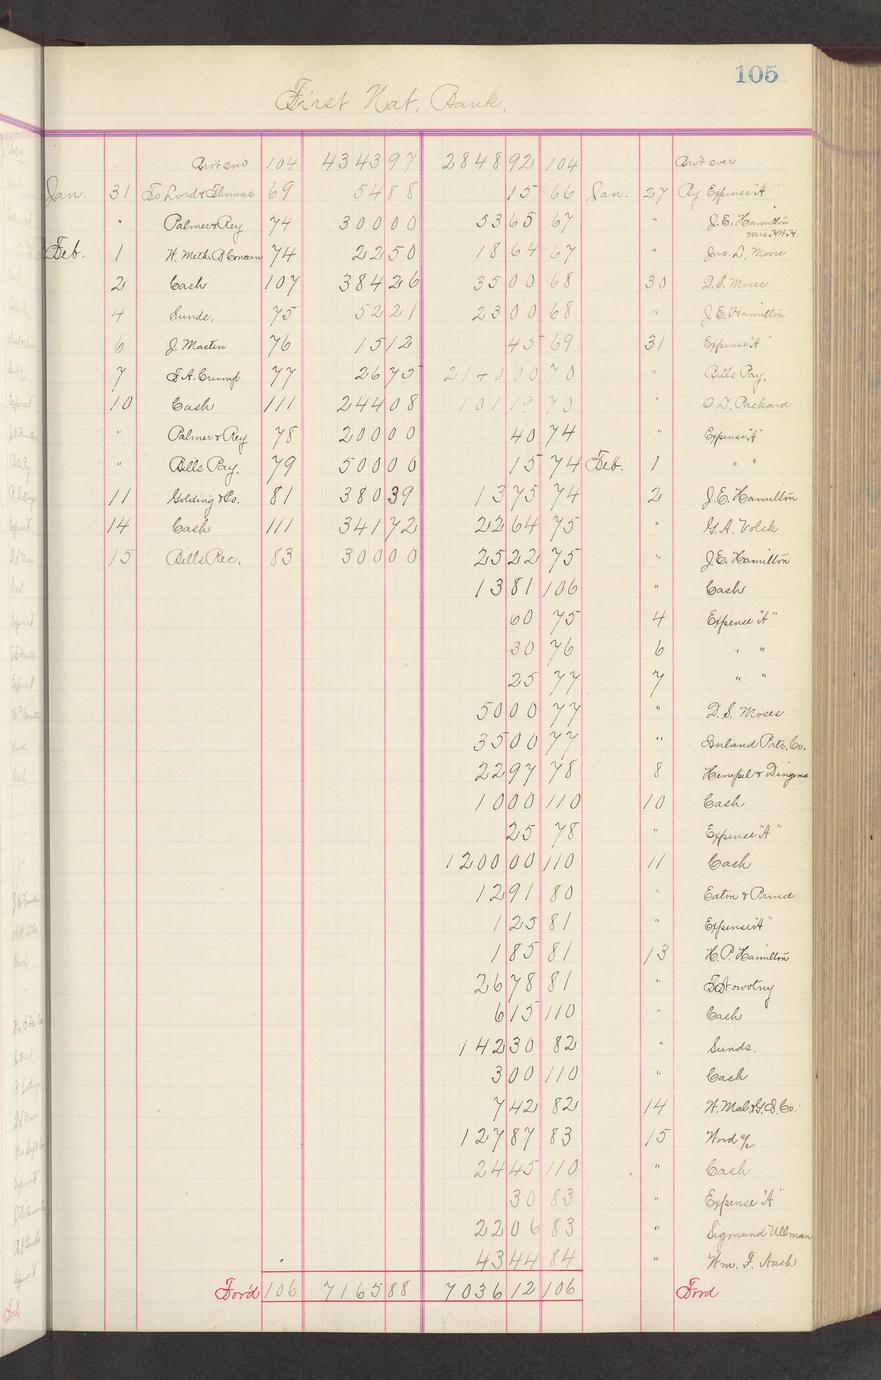 105
First Nat. Bank.
Bro't over 104 4343 97 2848 92 104 Bro't over
Jan. 31 To Lord & Thomas 69 54 88 15 66 Jan. 27 By Expense "A"
" Palmer & Rey 74 300 00 53 65 67 " J.E. Hamilton
Mrs. H.W.H.
Feb. 1 W. Meth. B. Concern 74 22 50 18 64 67 " Jno. D. Moore
2 Cash 107 384 26 35 00 68 30 D.S. Moses
4 Sunds. 75 52 21 23 00 68 " J.E. Hamilton
6 J. Martin 76 15 12 45 69 31 Expense "A"
7 F.A. Crump 77 26 75 2140 00 70 " Bills Pay.
10 Cash 111 244 08 101 19 70 " O.D. Packard
" Palmer & Rey 78 200 00 40 74 " Expense "A"
" Bills Pay. 79 500 00 15 74 Feb. 1 " "
11 Golding & Co. 81 380 39 13 75 74 2 J.E. Hamilton
14 Cash 111 341 72 22 64 75 " G.A. Volck
15 Bills Rec. 83 300 00 25 22 75 " J.E. Hamilton
13 81 106 " Cash
60 75 4 Expense "A"
30 76 6 " "
25 77 7 " "
50 00 77 " D.S. Moses
35 00 77 " Inland Prtr. Co.
22 97 78 8 Hempel & Dingens
10 00 110 10 Cash
25 78 " Expense "A"
1200 00 110 11 Cash
12 91 80 " Eaton & Prince
1 25 81 " Expense "A"
1 85 81 13 H.P. Hamilton
26 78 81 " Nowotny
6 15 110 " Cash
142 30 82 " Sunds.
3 00 110 " Cash
7 42 82 14 W. Mal. & G.S. Co.
127 87 83 15 Word %
24 45 110 " Cash
30 83 " Expense "A"
22 06 83 " Sigmund Ullman
43 44 84 " Wm. F. Nash
For'd 106 7165 88 7036 12 106 Ford